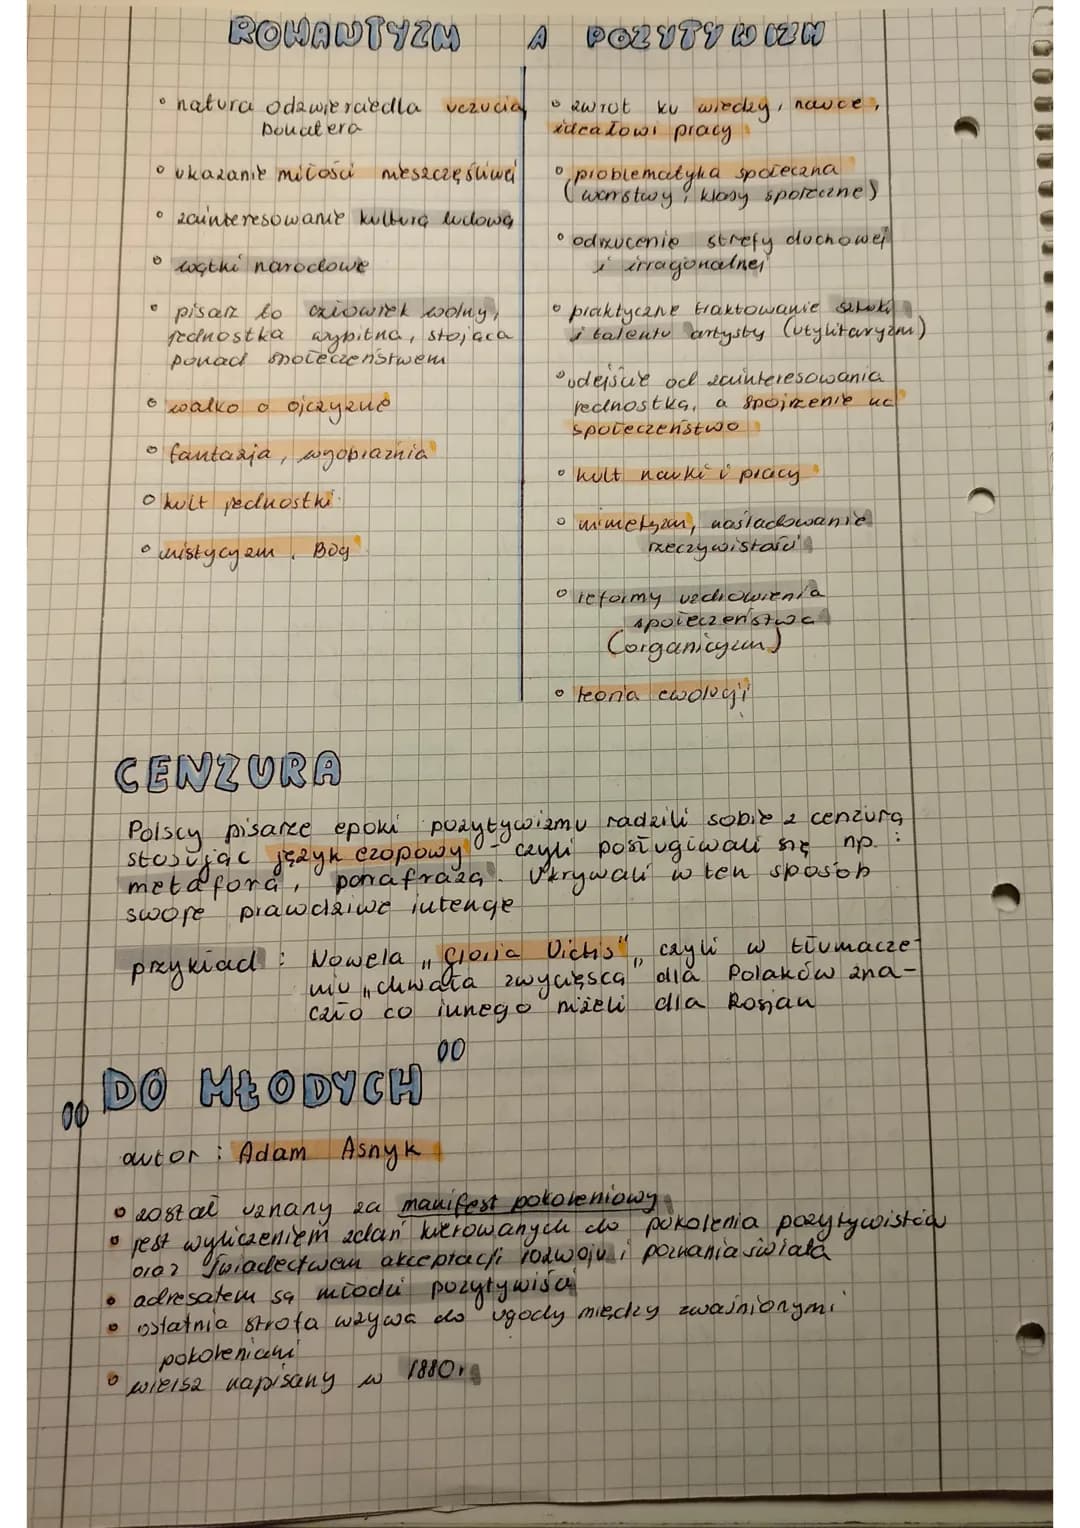 ROMANTYZM A POZYTYWIZM
• natura odzwierciedla uczucia
bohatera
• ukazanie miłości nieszczęśliwej
• zainteresowanie kulturą ludową
• wątki narodowe
• pisarz to człowiek wolny,
jednostka wybitna, stojąca
ponad społeczeństwem
• walka o ojczyznę
• fantazja, wyobraźnia
• kult jednostki
• mistycyzm, Bóg
• zwrot ku wiedzy, nauce,
ideałowi pracy
• problematyka społeczna
(warstwy i klasy społeczne)
• odrzucenie strefy duchowej
i irragonalnej
• praktyczne traktowanie sztuki
i talentu artysty (utylitaryzm)
• odejście od zainteresowania
jednostką, a spojrzenie na
społeczeństwo
• kult nauki i pracy
• mimetyzm, naśladowanie
rzeczywistości
• reformy uzdrowienia
społeczeństwa
(organicyzm)
• teoria ewolucji
CENZURA
Polscy pisarze epoki pozytywizmu radzili sobie z cenzurą
stosując język ezopowy - czyli posługiwali się np. :
metaforą, parafrazą. Ukrywali w ten sposób
swoje prawdziwe intencje
przykład : Nowela „Gloria Victis", czyli w tłumacze-
niu „chwała zwycięscą" dla Polaków zna-
czyło co innego niżeli dla Rosjan
„DO MŁODYCH"
autor : Adam Asnyk
• został uznany za manifest pokoleniowy
• jest wyliczeniem zdań kierowanych do pokolenia pozytywistów
oraz świadectwem akceptacji rozwoju i poznania świata
• adresatem są młodzi pozytywiści
• ostatnia strofa wzywa do ugody między zwaśnionymi
pokoleniami
• wiersz napisany w 1880r